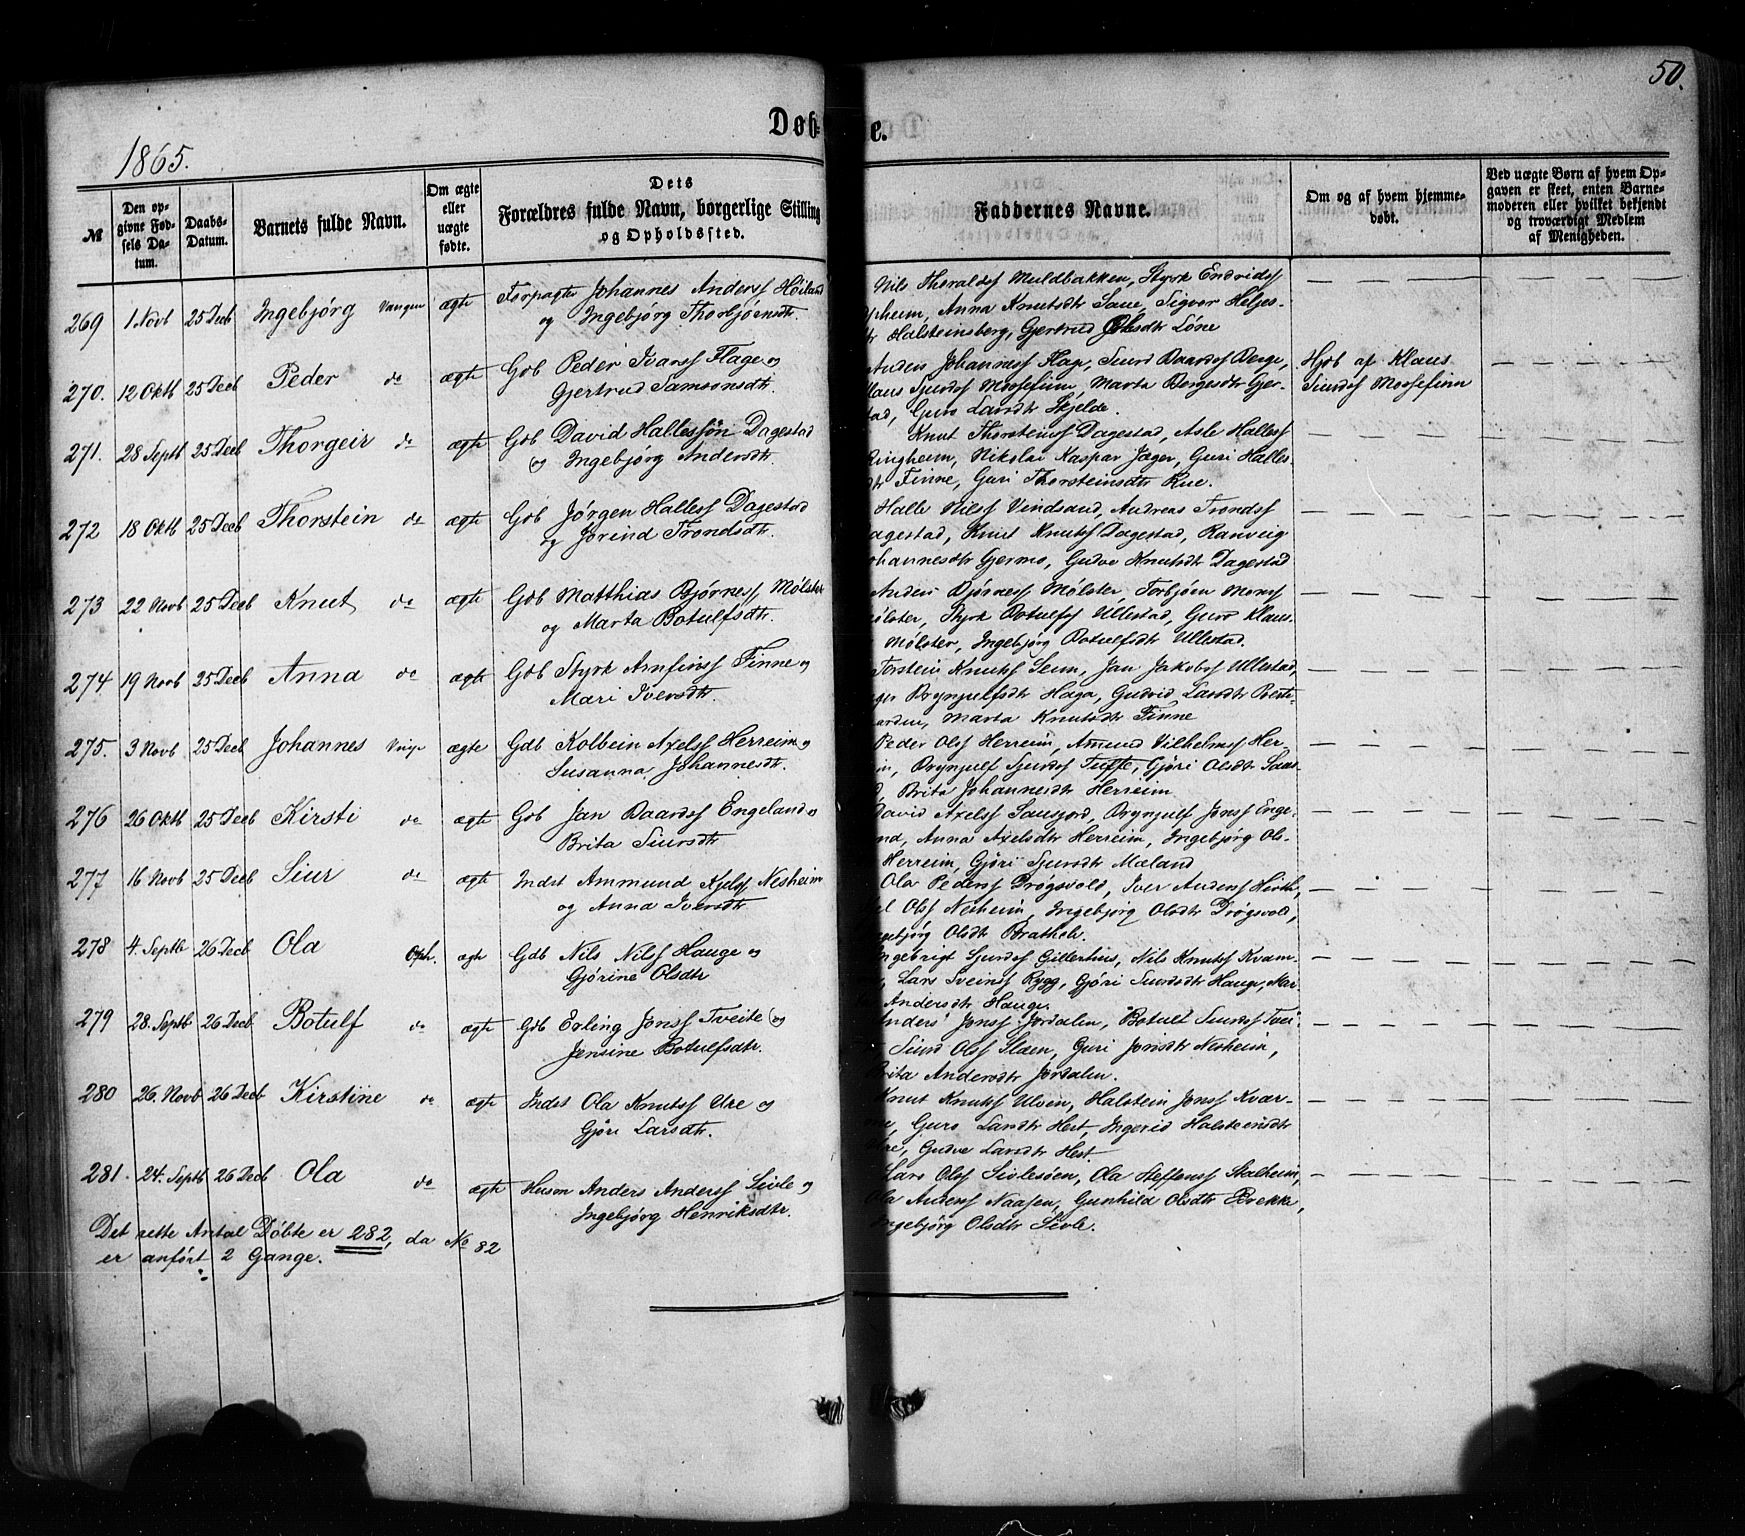 50.
Døb-
e.
1865.
№
Den op-
givne Fød-
sels Da-
tum.
Daabs-
Datum.
Barnets fulde Navn.
Om ægte
eller
uægte
fødte.
Dets
Forældres fulde Navn, borgerlige Stilling
og Opholdssted.
Faddernes Navne.
Om og af hvem hjemme-
døbt.
Ved uægte Børn af hvem Op-
gaven er skeet, enten Barne-
moderen eller hvilket bekjendt
og troværdigt Medlem
af Menigheden.
269 1 Novb 25 Decb Ingebjørg Vangen ægte Forpagter Johannes Anderss Høiland
og Ingebjørg Thorbjørnsdtr.
Nils Thoraldss Muldbakken, Styrk Endridss
pheim, Anna Knutsdtr Saue, Sigvor Helges-
tr Halsteinsberg, Gjertrud Olsdtr Løne
270. 12 Oktb 25 Decb Peder do ægte Gdb Peder Ivarss Flage og
Gjertrud Samsonsdtr.
Anders Johanness Flage, Siurd Baardss Berge,
laus Sjurdss Mossefinn, Marta Bergesdtr Gjer-
stad, Guro Larsdtr Skjelde.
Hjdb af Klaus
Siurdss Mossefinn
271. 28 Septb 25 Decb Thorgeir do ægte Gdb David Hallessøn Dagestad
og Ingebjørg Andersdtr.
Knut Thorsteinss Dagestad, Asle Halless
Ringheim, Nikolai Kaspar Jæger, Guri Halles-
dtr Finne, Guri Thorsteinsdtr Rue.
272 18 Oktb 25 Decb Thorstein do ægte Gdb Jørgen Halless Dagestad
og Jorind Trondsdtr.
Halle Nilss Vindsand, Andreas Trondss
agestad, Knut Knutss Dagestad, Ranveig
ohannesdtr Gjermo, Gudve Knutsdtr Dagestad
273 22 Novb 25 Decb Knut do ægte Gdb Matthias Bjørness Mølster
og Marta Botulfsdtr.
Anders Bjørness Mølster, Torbjørn Monss
ølster, Styrk Botulfss Ullestad, Guro Klaus-
Mølster, Ingebjørg Botulfsdtr Ullestad.
274 19 Novb 25 Decb Anna do ægte Gdb Styrk Arnfinss Finne og
Mari Iversdtr.
Torstein Knutss Seim, Jan Jakobss Ullestad,
ger Brynjulfsdtr Haga, Gudvid Larsdtr
arden, Marta Knutsdtr Finne
275. 3 Novb 25 Decb Johannes Vinje ægte Gdb Kolbein Axelss Herreim og
Susanna Johannesdtr.
Peder Olss Herreim, Amund Vilhelmss Her-
m, Brynjulf Sjurdss Tufte, Gjøri Olsdtr
, Brita Johannesdtr Herreim
276 26 Oktb 25 Decb Kirsti do ægte Gdb Jan Baardss Engeland og
Brita Siursdtr
David Axelss Saufjord, Brynjulf Jonss Enge-
nd, Anna Axelsdtr Herreim, Ingebjørg Ols-
Herreim, Gjøri Sjursdtr Mæland
277 16 Novb 25 Decb Siur do ægte Indst Ammund Kjelss Nesheim
og Anna Iversdtr
Ola Pederss Drøgsvold, Iver Anderss Hirth,
el Olss Nesheim, Ingebjørg Olsdtr Drøgsvold,
ngebjørg Olsdtr Brathole.
278 4. Septb 26 Decb Ola Oph. ægte Gdb Nils Nilss Hauge og
Gjørine Olsdtr
Ingebrigt Sjurdss Gillerhus, Nils Knutss Kvam-
, Lars Sveinss Rygg, Gjøri Siursdtr Hauge, Mar
Andersdtr Hauge.
279 28. Septb 26 Decb Botulf do ægte Gdb Erling Jonss Tveite og
Jensine Botulfsdtr.
Anders Jonss Jordalen, Botulf Siurdss Tvei-
, Siurd Olss Slæen, Guri Jonsdtr Nesheim,
Brita Andersdtr Jordalen.
280 26. Novb 26 Decb Kirstine do ægte Indst Ola Knutss Øre og
Gjøri Larsdtr.
Knut Knutss Ulven, Halstein Jonss Kvar-
me, Guro Larsdtr Hest, Ingerid Halsteinsdtr
re, Gudve Larsdtr Hest
281. 24. Septb 26 Decb Ola do ægte Husm Anders Anderss Sivle og
Ingebjørg Henriksdtr.
Lars Olss Sivlesøen, Ola Steffenss Stalheim,
Ola Anderss Naasen, Gunhild Olsdtr Brekke,
Ingebjørg Olsdtr Sivle.
Det rette Antal Døbte er 282, da No 82
er anført 2 Gange.